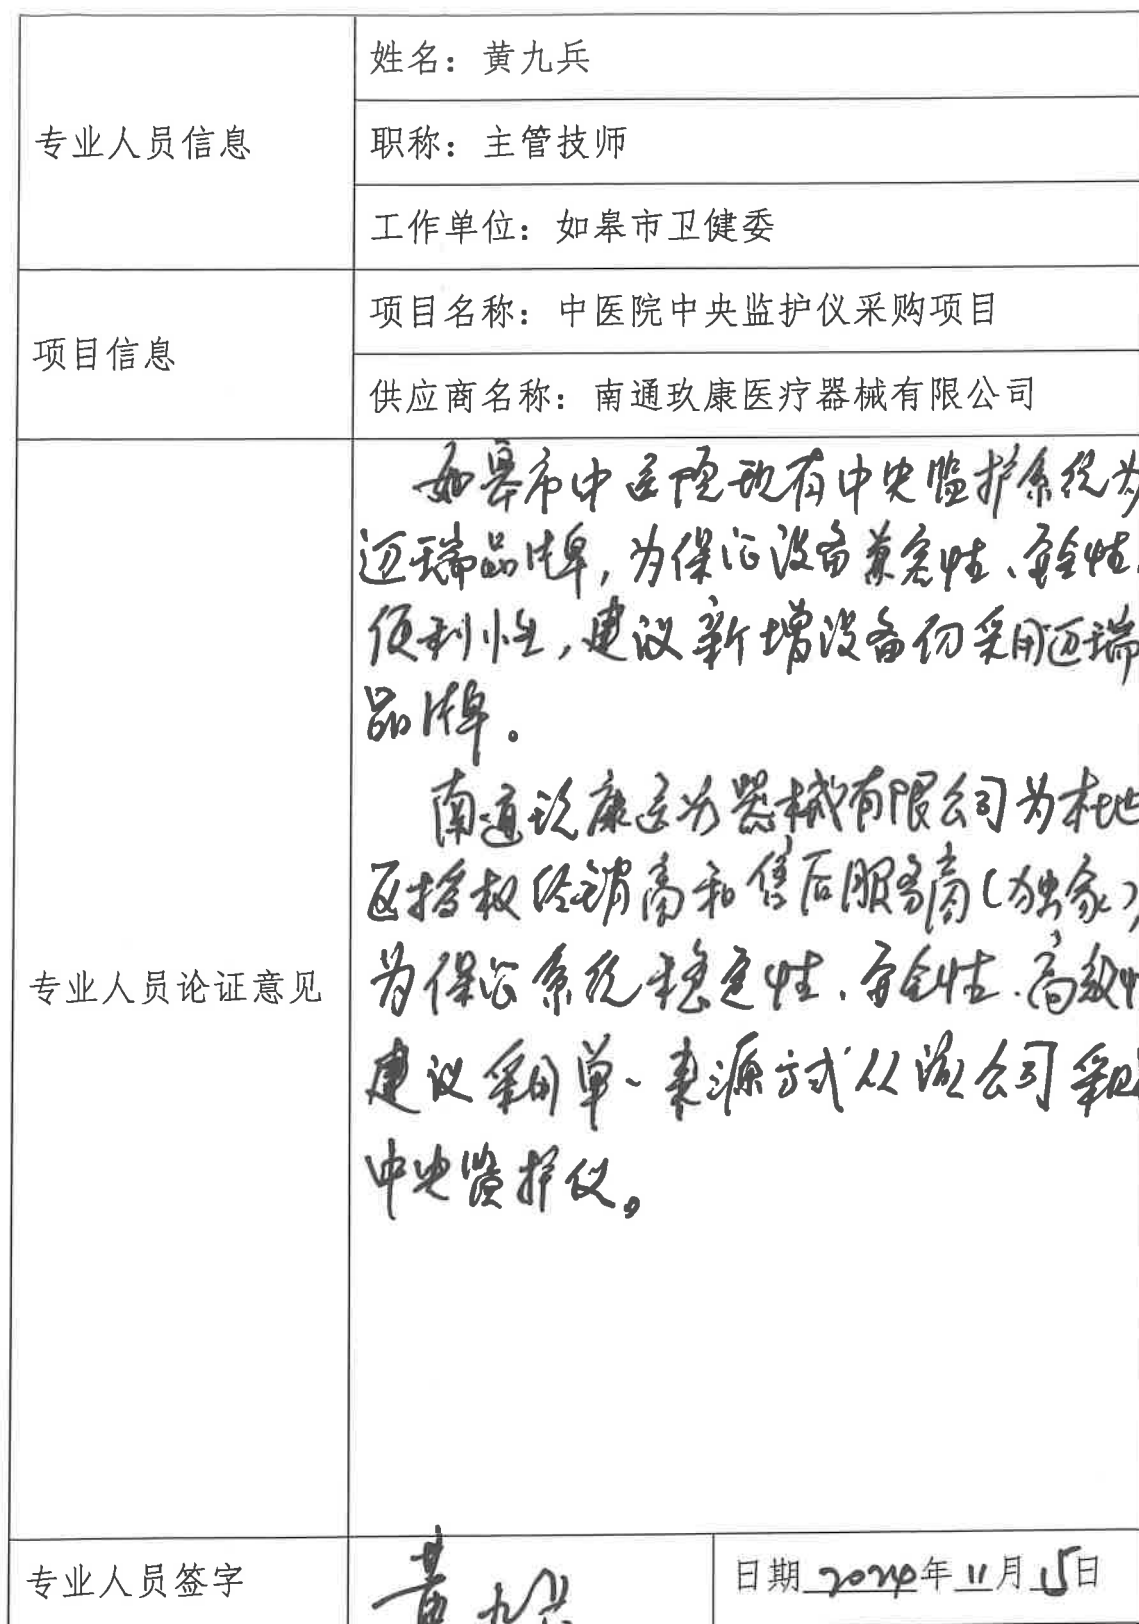 专业人员信息
姓名：黄九兵
职称：主管技师
工作单位：如皋市卫健委
项目信息
项目名称：中医院中央监护仪采购项目
供应商名称：南通玖康医疗器械有限公司
专业人员论证意见
如皋市中医院现有中央监护系统为
迈瑞品牌，为保证设备兼容性、安全性、
便利性，建议新增设备仍采用迈瑞
品牌。
南通玖康医疗器械有限公司为本地
区授权经销商和售后服务商（独家），
为保证系统稳定性、安全性、高效性
建议采用单一来源方式从该公司采购
中央监护仪。
专业人员签字
黄九兵
日期 2024年11月15日